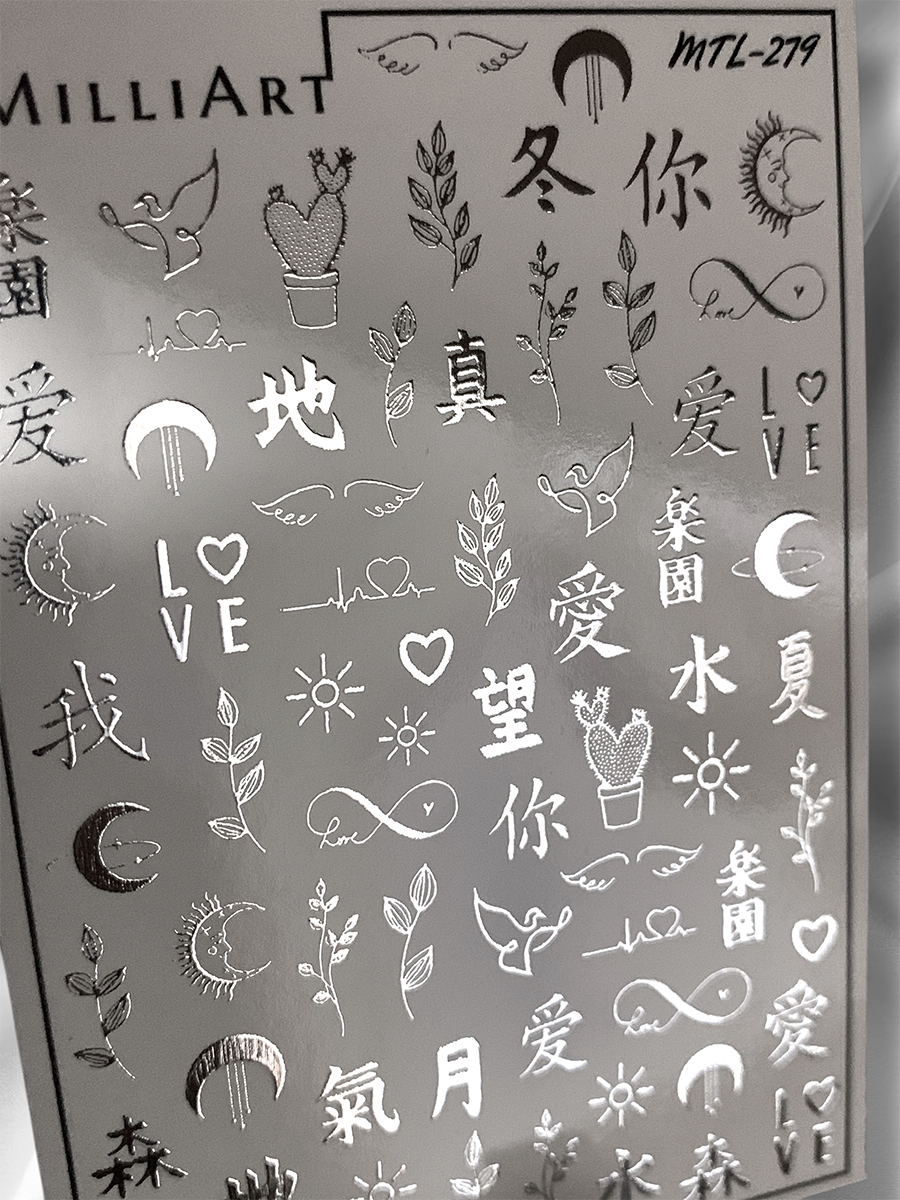 MILLIART
MTL-279
冬
你
楽
園
love
真
地
爱
爱
L
VE
楽
園
L
VE
愛
水
夏
我
望
你
love
楽
園
爱
love
愛
氣
月
L
VE
森
水
森